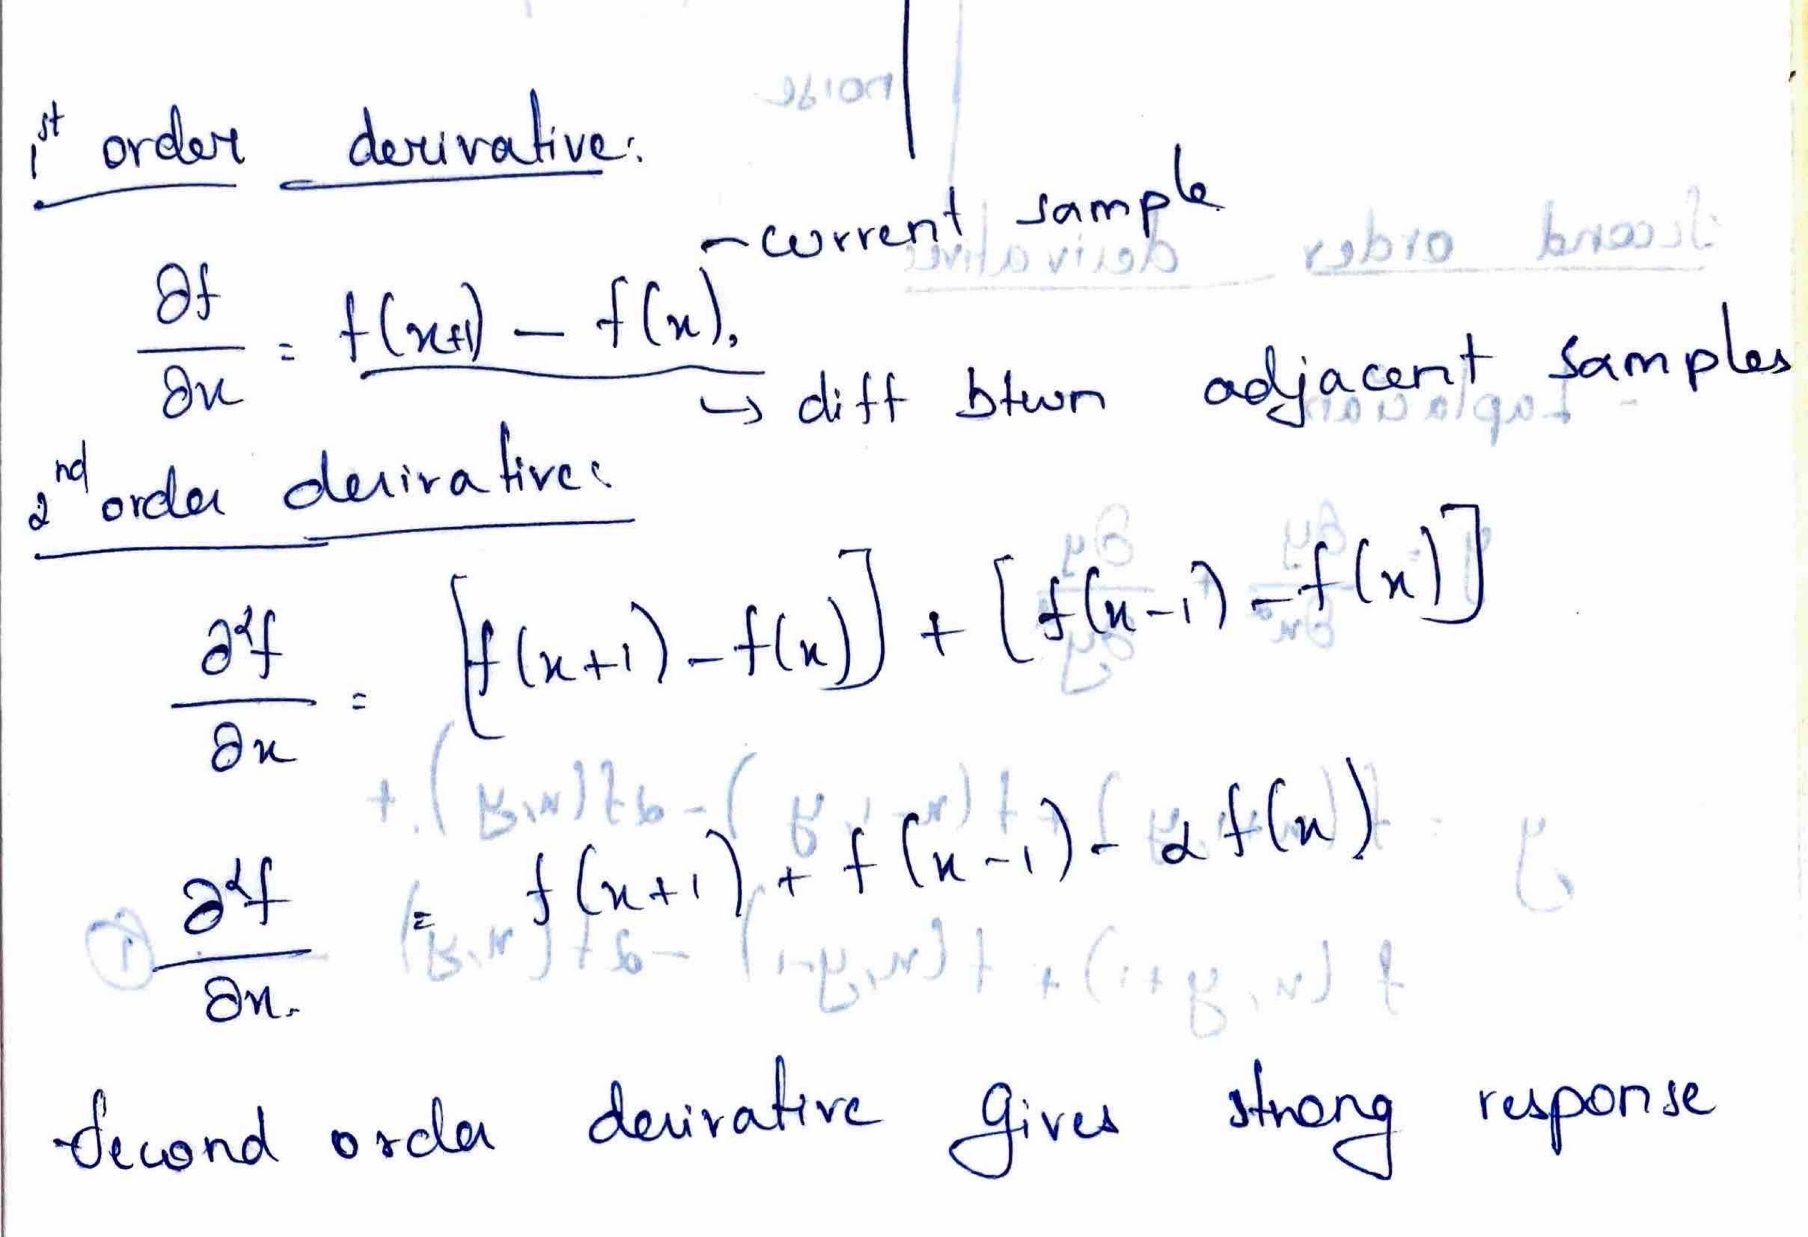 1st order derivative:
- current sample
∂f/∂x = f(x+1) - f(x),
↳ diff btwn adjacent samples
2nd order derivative:
∂²f/∂x = [f(x+1) - f(x)] + [f(x-1) - f(x)]
∂²f/∂x = f(x+1) + f(x-1) - 2f(x)
Second order derivative gives strong response